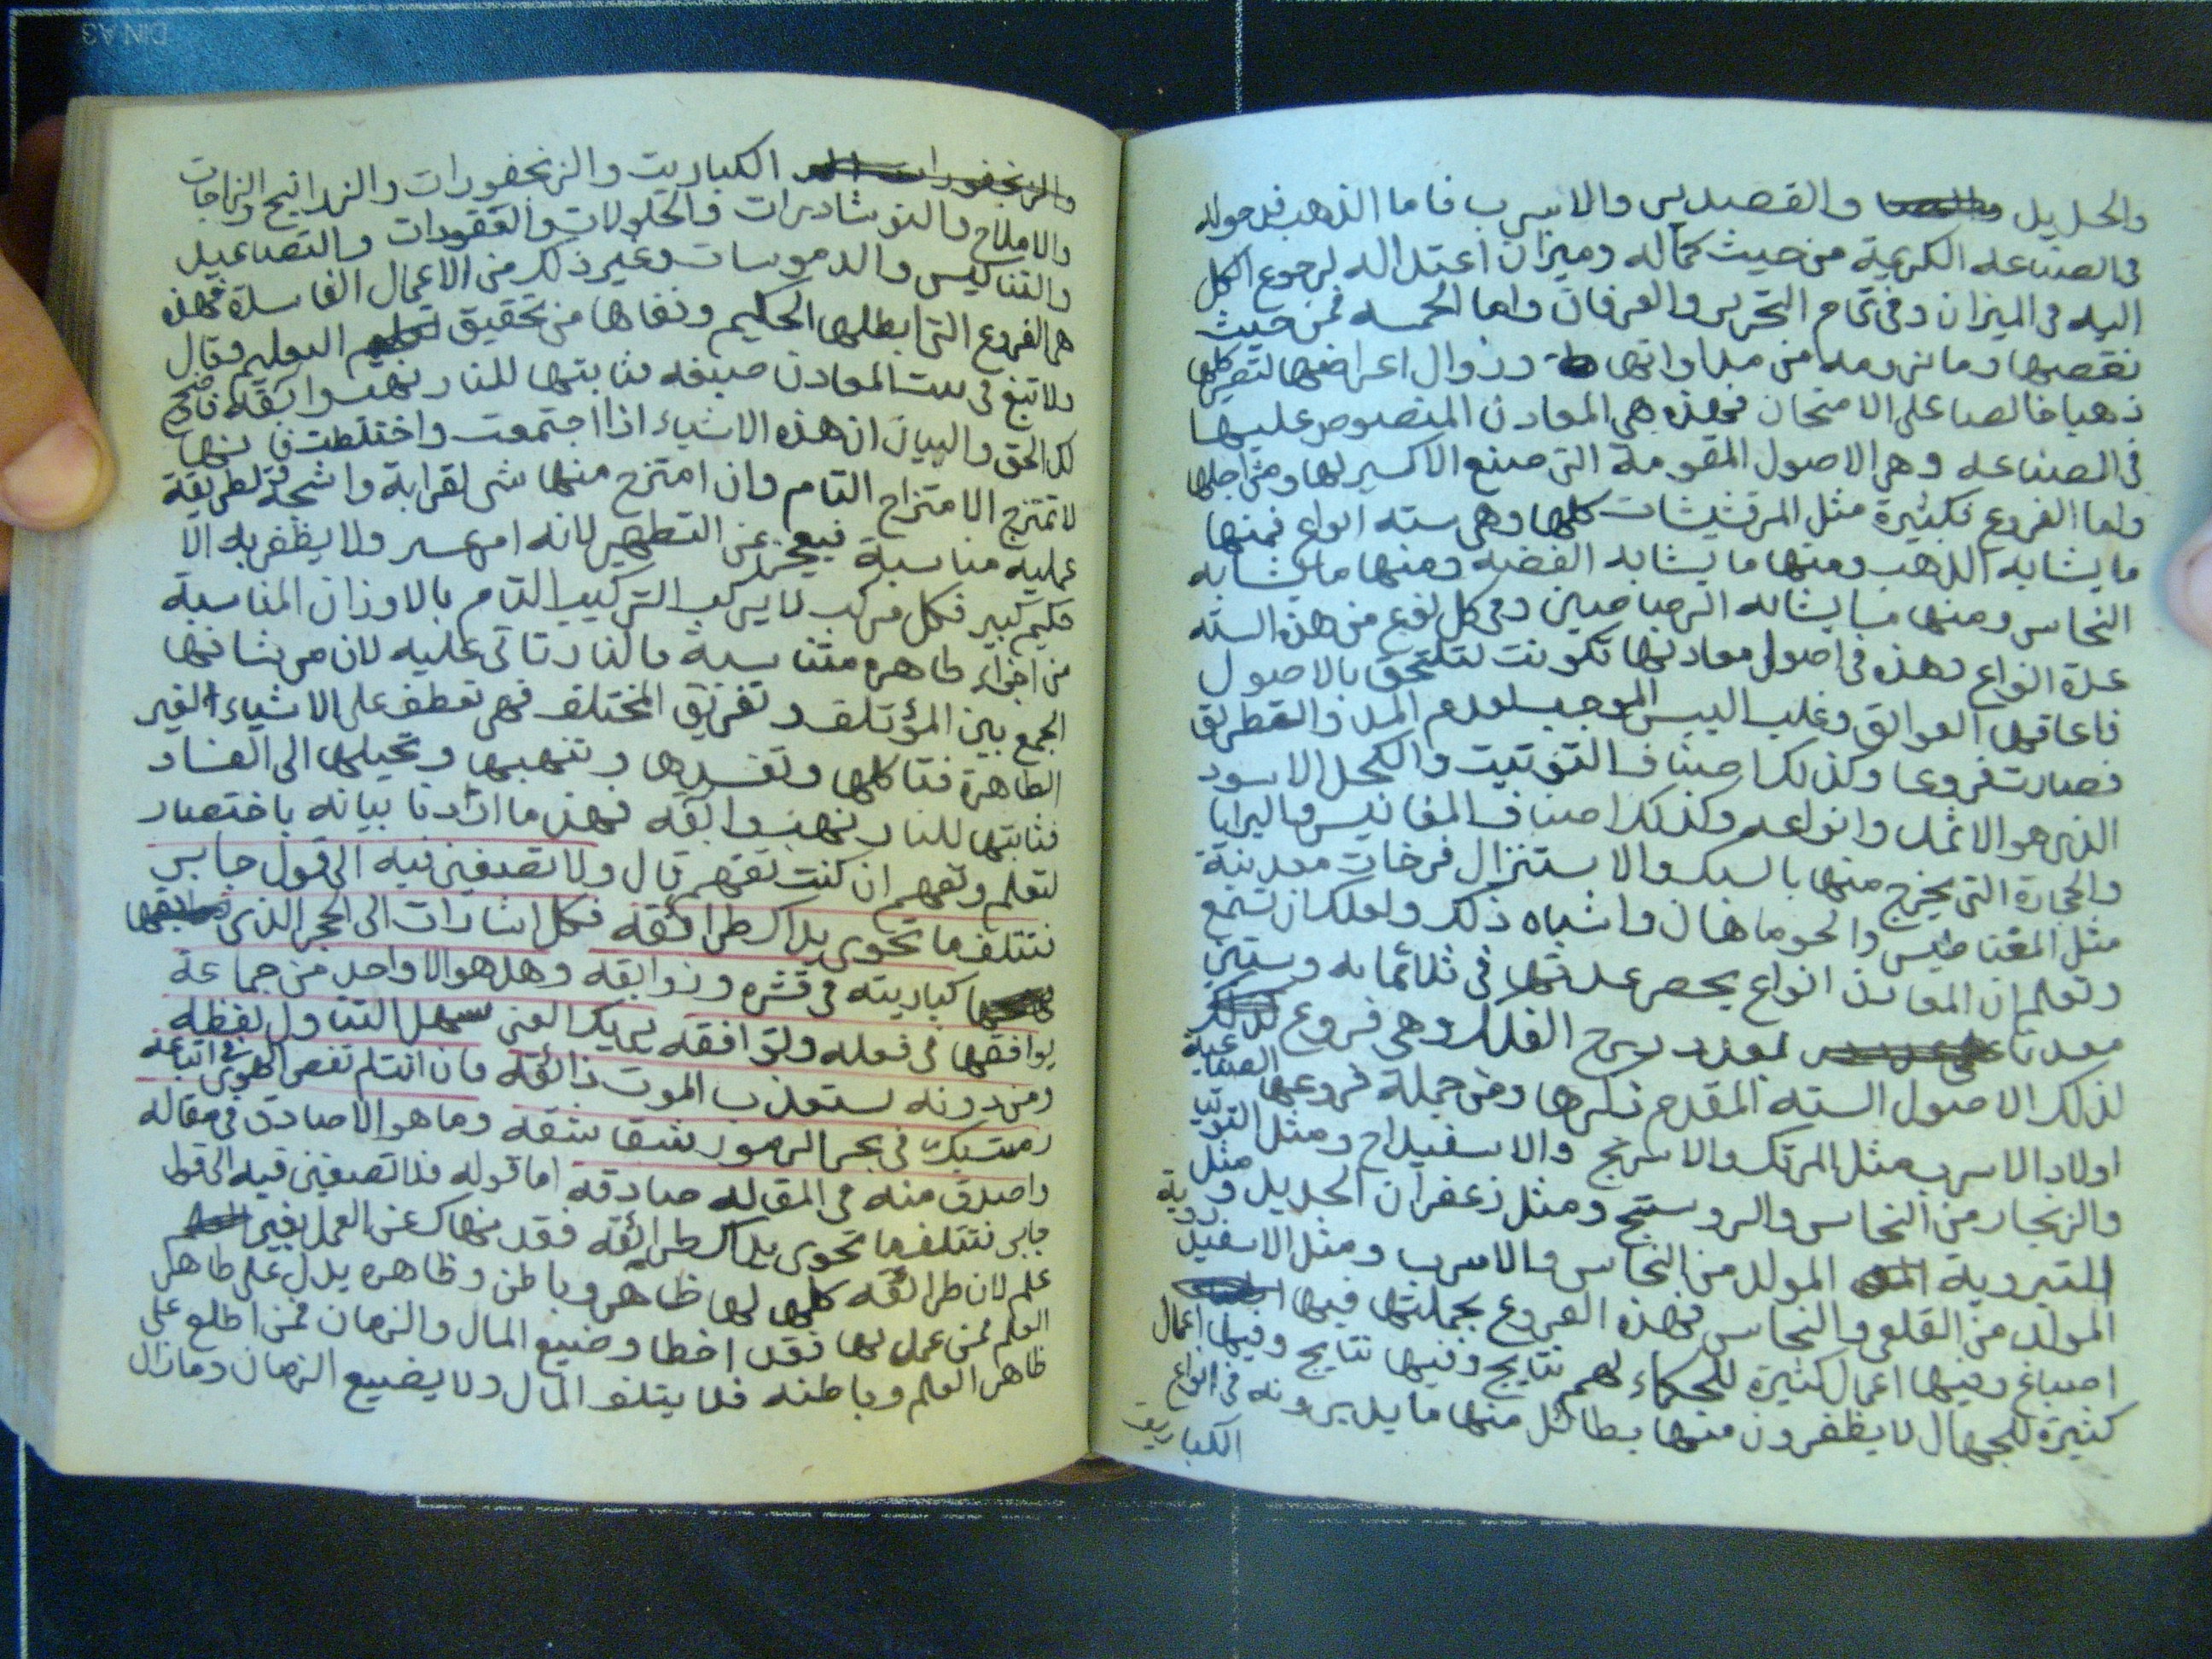 والحديد والقصدير والاسرب فاما الذهب فدخوله
فى الصناعه الكريمة من حيث كماله وميزان اعتداله لرجوع الكل
اليه فى الميزان وفى تمام التحرير والعرفان واما الخمسه فمن حيث
نقصها وما لزومه من مداواتها وزوال اعراضها لتصير كلها
ذهبا خالصا على الامتحان فهذه هى المعادن المنصوص عليها
فى الصناعه وهى الاصول المقومة التى صنع الاكسير لها ومن اجلها
واما الفروع فكثيرة مثل المرقشيشات كلها وهى سته انواع فمنها
ما يشابه الذهب ومنها ما يشابه الفضه ومنها ما يشابه
النحاس ومنها ما يشابه الرصاصين وفى كل نوع من هذه السته
عدة انواع وهذه فى اصول معادنها تكونت لتلتحق بالاصول
فاعاقها العوائق وغلب اليبس الموجب لعدم المد والتطريق
فصارت فروعا وكذلك اصناف التوتيت والكحل الاسود
الذى هو الاثمد وانواعه وكذلك اصناف المغانيس والبرايا
والحجارة التى يخرج منها بالسبك والاستنزال فرخات معدنية
مثل المغناطيس والحوماهان واشباه ذلك ولعلك ان تسمع
وتعلم ان المعادن انواع يحصر عدتها فى ثلاثمايه وستين
معدنا بعدد درج الفلك وهى فروع
لذلك الاصول السته المقدم ذكرها ومن جملة فروعها الصناعية
اولاد الاسرب مثل المرتك والاسرنج والاسفيداج ومثل التوتيا
والزنجار من النحاس والروستج ومثل زعفران الحديد ومثل
المتبروية المولد من النحاس والاسرب ومثل الاسفيدروية
المولد من القلعى والنحاس فهذه الفروع بجملتها فيها
اصباغ وفيها اعمال كثيرة للحكماء لهم نتايج وفيها نتايج وفيها اعمال
كثيرة للجهال لا يظفرون منها بطائل منها ما يدبرونه فى انواع
الكباريت
الكباريت والزنجفورات والزرانيخ والزاجات
والاملاح والنوشادرات والحلولات والعقودات والتصاعيد
والتناكيس والدموسات وغير ذلك من الاعمال الفاسدة فهذه
هى الفروع التى ابطلها الحكيم ونفاها من تحقيق العلم وقال
ولا تبغ فى ست المعادن صبغه فثابتها للنار نهب وابقه فاتضح
لك الحق والبيان ان هذه الاشياء اذا اجتمعت واختلطت فانها
لا تمتزج الامتزاج التام وان امتزج منها شى لقرابة واشجة لطريقة
عملية مناسبة فيعجز عن التطهير لانه امر عسر ولا يظفر به الا
حكيم كبير فكل مركب لا يركب التركيب التام بالاوزان المناسبة
من اجزاء طاهره متناسبة فالنار تاتى عليه لان من شانها
الجمع بين المؤتلف وتفريق المختلف فهى تعطف على الاشياء الغير
الطاهرة فتاكلها وتفسدها وتنهبها وتحيلها الى الفساد
فثابتها للنار نهب وابقه فهذا ما اردنا بيانه باختصار
لتعلم وتفهم ان كنت تفهم قال ولا تصدفين فيه الى قول جابر
فتتلف ما تحوى يداك طرائقه فكل اشارات الى الحجر الذى
كباريته فى قشره وزوابقه وهل هو الا واحد من جماعة
يوافقها فى فعله وتوافقه يريك الغنى سهل التناول لفظه
ومن دونه يستعذب الموت ذائقه فان انت لم تعص الهوى فى اتباعه
رمت بك فى بحر الرموز شقاشقه وما هو الا صادق فى مقاله
واصدق منه فى المقاله صادقه اما قوله فلا تصدفين فيه الى قول
جابر فتتلف ما تحوى يداك طرائقه فقد نهاك عن العمل بغير
علم لان طرائقه كلها لها ظاهر وباطن وظاهره يدل على ظاهر
العلم فمن عمل لها فقد اخطا وضيع المال والزمان فمن اطلع على
ظاهر العلم وباطنه فلا يتلف المال ولا يضيع الزمان وما زال